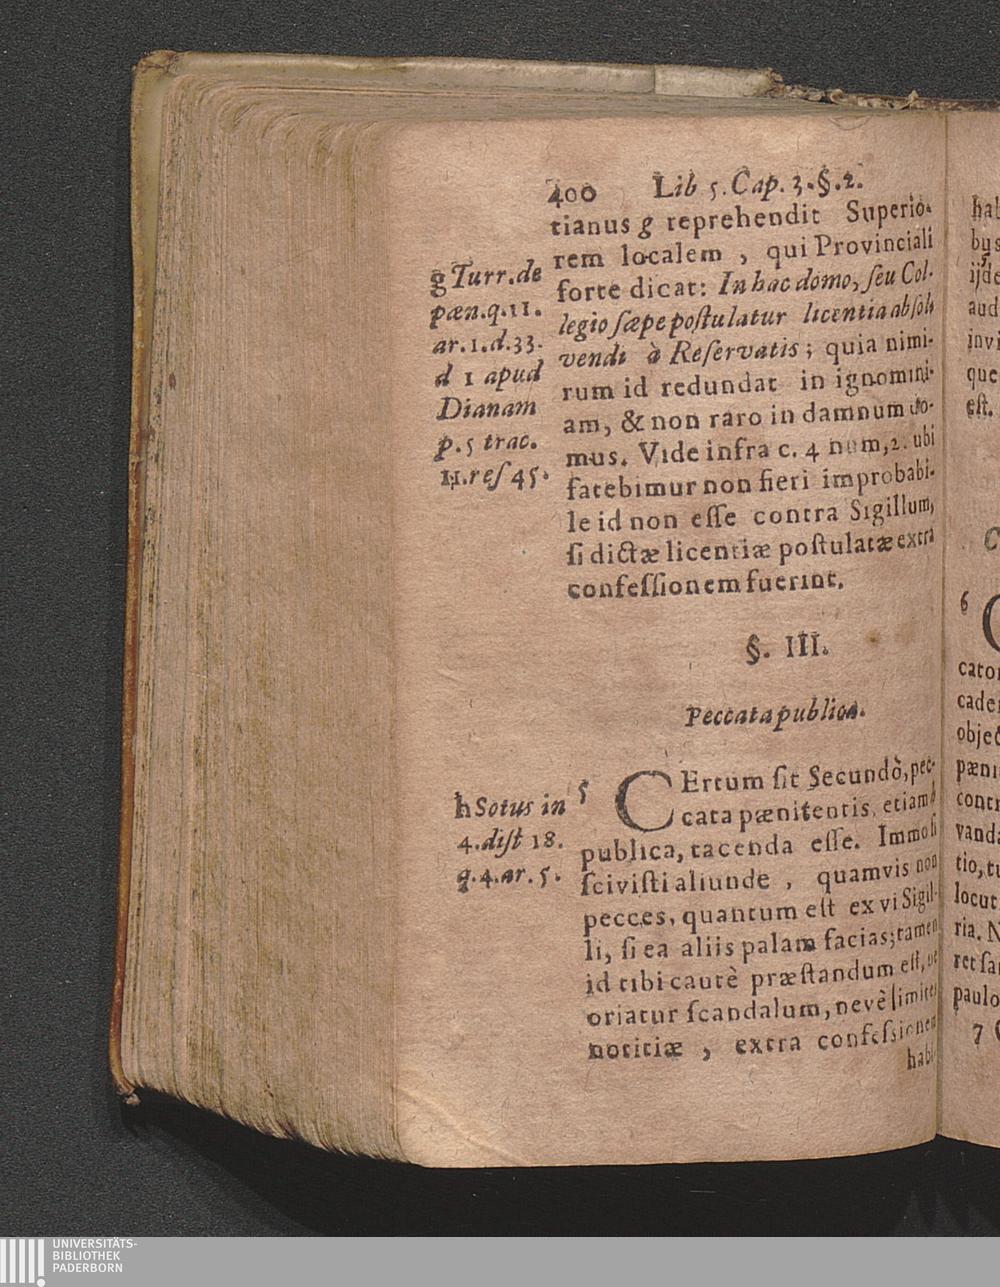 400 Lib 5. Cap. 3. §. 2.
tianus g reprehendit Superio-
rem localem, qui Provinciali
forte dicat: In hac domo, ſeu Col-
legio ſæpe poſtulatur licentia abſol-
vendi à Reſervatis; quia nimi-
rum id redundat in ignomini-
am, & non raro in damnum do-
mus. Vide infra c. 4 num, 2. ubi
fatebimur non fieri improbabi-
le id non eſſe contra Sigillum,
ſi dictæ licentiæ poſtulatæ extra
confeſſionem fuerint.
g Turr. de
pæn. q. 11.
ar. 1. d. 33.
d 1 apud
Dianam
p. 5 trac.
11. reſ 45.
§. III.
Peccata publica.
h Sotus in
4. diſt 18.
q. 4. ar. 5.
5 CErtum ſit Secundò, pec-
cata pænitentis, etiam h
publica, tacenda eſſe. Immo ſi
ſciviſti aliunde, quamvis non
pecces, quantum eſt ex vi Sigil-
li, ſi ea aliis palam facias; tamen
id tibi cautè præſtandum eſt, ne
oriatur ſcandalum, nevè limites
notitiæ, extra confeſsionem
habi-
hal
bus
ijde
aud
invi
que
eſt.
C
6 C
cato
cade
objec
pæni
cont
vanda
tio, tu
locut
ria. N
ret ſa
paulo
7
UNIVERSITÄTS-
BIBLIOTHEK
PADERBORN